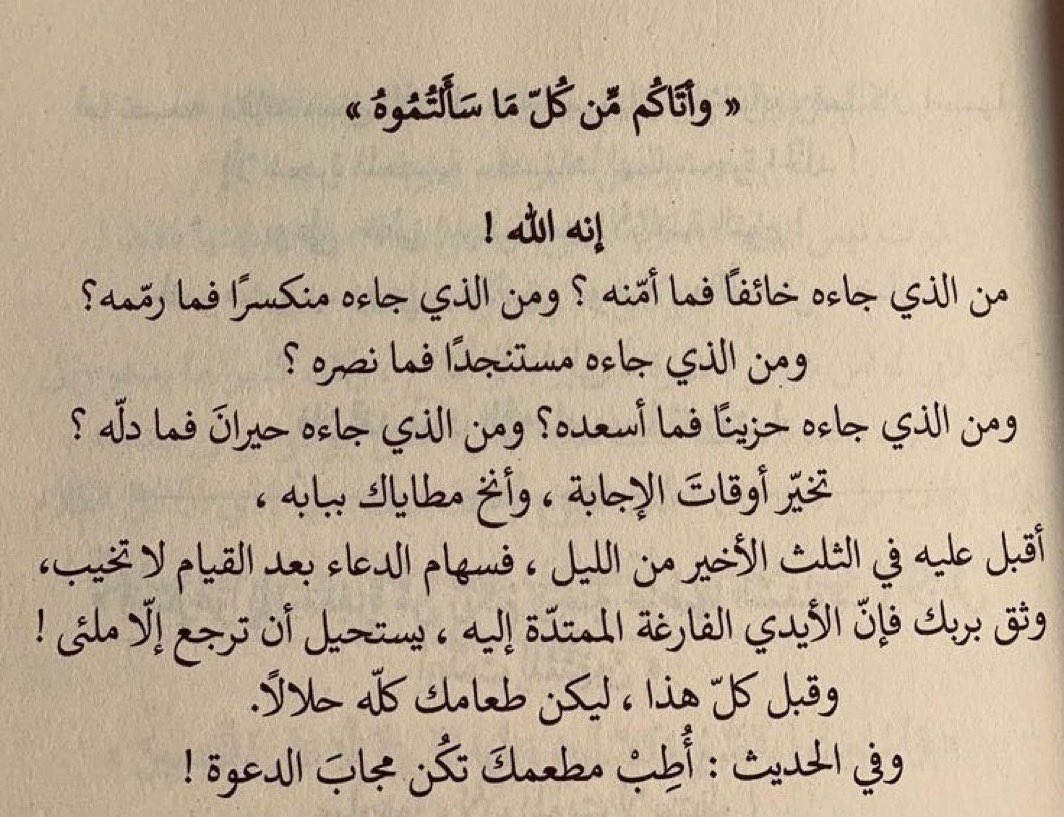 « وآتَاكُم مِّن كُلّ مَا سَأَلتُمُوهُ »
إنه الله !
من الذي جاءه خائفًا فما أمّنه ؟ ومن الذي جاءه منكسرًا فما رمّمه؟
ومن الذي جاءه مستنجدًا فما نصره ؟
ومن الذي جاءه حزينًا فما أسعده؟ ومن الذي جاءه حيرانَ فما دلّه ؟
تخيّر أوقاتَ الإجابة ، وأنخ مطاياك ببابه ،
أقبل عليه في الثلث الأخير من الليل ، فسهام الدعاء بعد القيام لا تخيب،
وثق بربك فإنّ الأيدي الفارغة الممتدّة إليه ، يستحيل أن ترجع إلّا ملئى !
وقبل كلّ هذا ، ليكن طعامك كلّه حلالًا.
وفي الحديث : أُطِبْ مطعمكَ تكُن مجابَ الدعوة !